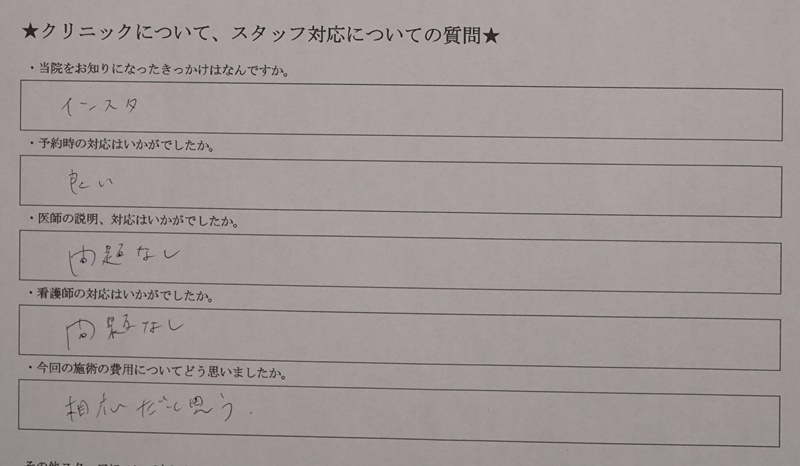 ★クリニックについて、スタッフ対応についての質問★
・当院をお知りになったきっかけはなんですか。
インスタ
・予約時の対応はいかがでしたか。
良い
・医師の説明、対応はいかがでしたか。
問題なし
・看護師の対応はいかがでしたか。
問題なし
・今回の施術の費用についてどう思いましたか。
相応だと思う.